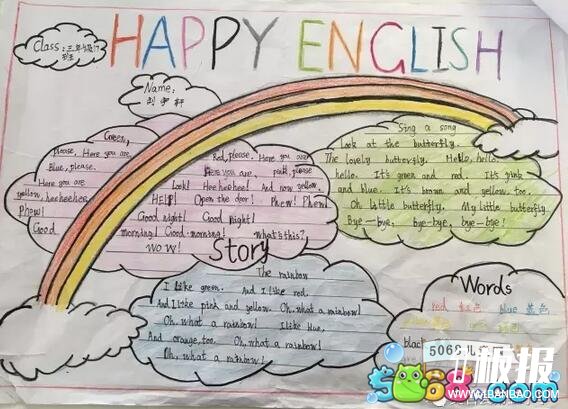 HAPPY ENGLISH
Class:三年级17
班
Name:
Green,
please. Here you are.
Blue, please.
Here you are
yellow, heeheehee.
Phew!
Good
Red, please. Here you are
Here you are. pink, please
Look! Hee hee hee! And now yellow.
HELP! Open the door! Phew! Phew!
Good night! Good night!
morning! Good morning! What's this?
WOW!
Sing a song
Look at the butterfly.
The lovely butterfly. Hello, hello,
hello. It's green and red. It's pink
and blue. It's brown and yellow, too.
Oh little butterfly. My little butterfly.
Bye-bye, bye-bye, bye-bye!
Story
The rainbow
I like green. And I like red.
And I like pink and yellow. Oh, what a rainbow!
Oh, what a rainbow! I like blue,
And orange, too. Oh, what a rainbow!
Oh, what a rainbow!
Words
red 红色 blue 蓝色
black
5068儿童网
手机板报
5068.com
WWW.1BANBAO.COM